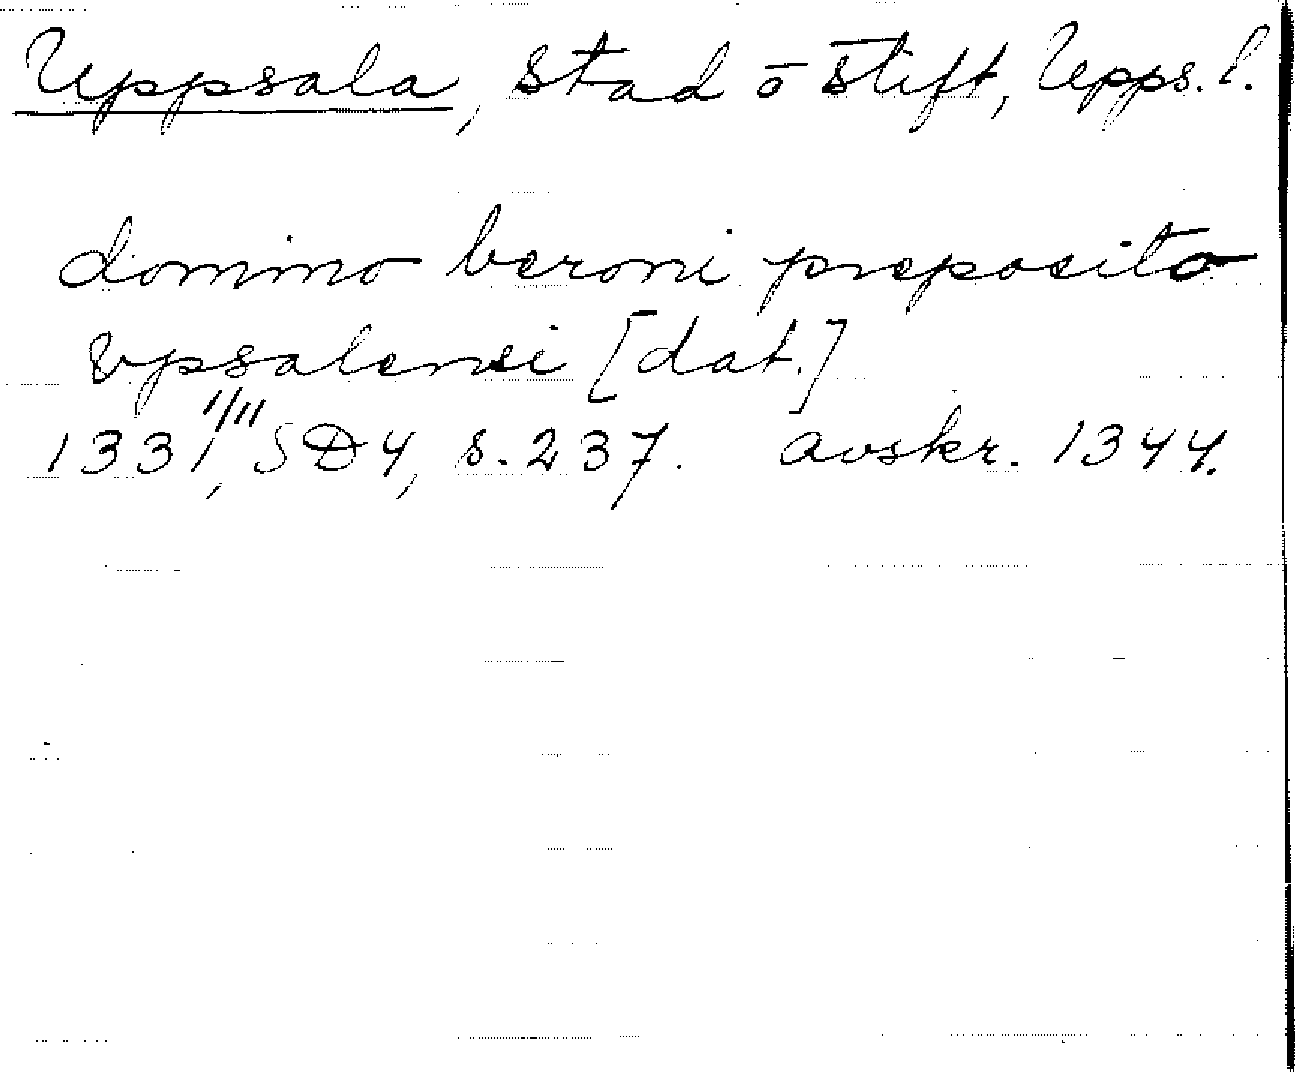 Uppsala, stad o stift, Upps. l.
domino beroni preposito
vpsalensi [dat.]
1331 1/11, SD4, s. 237. avskr. 1344.